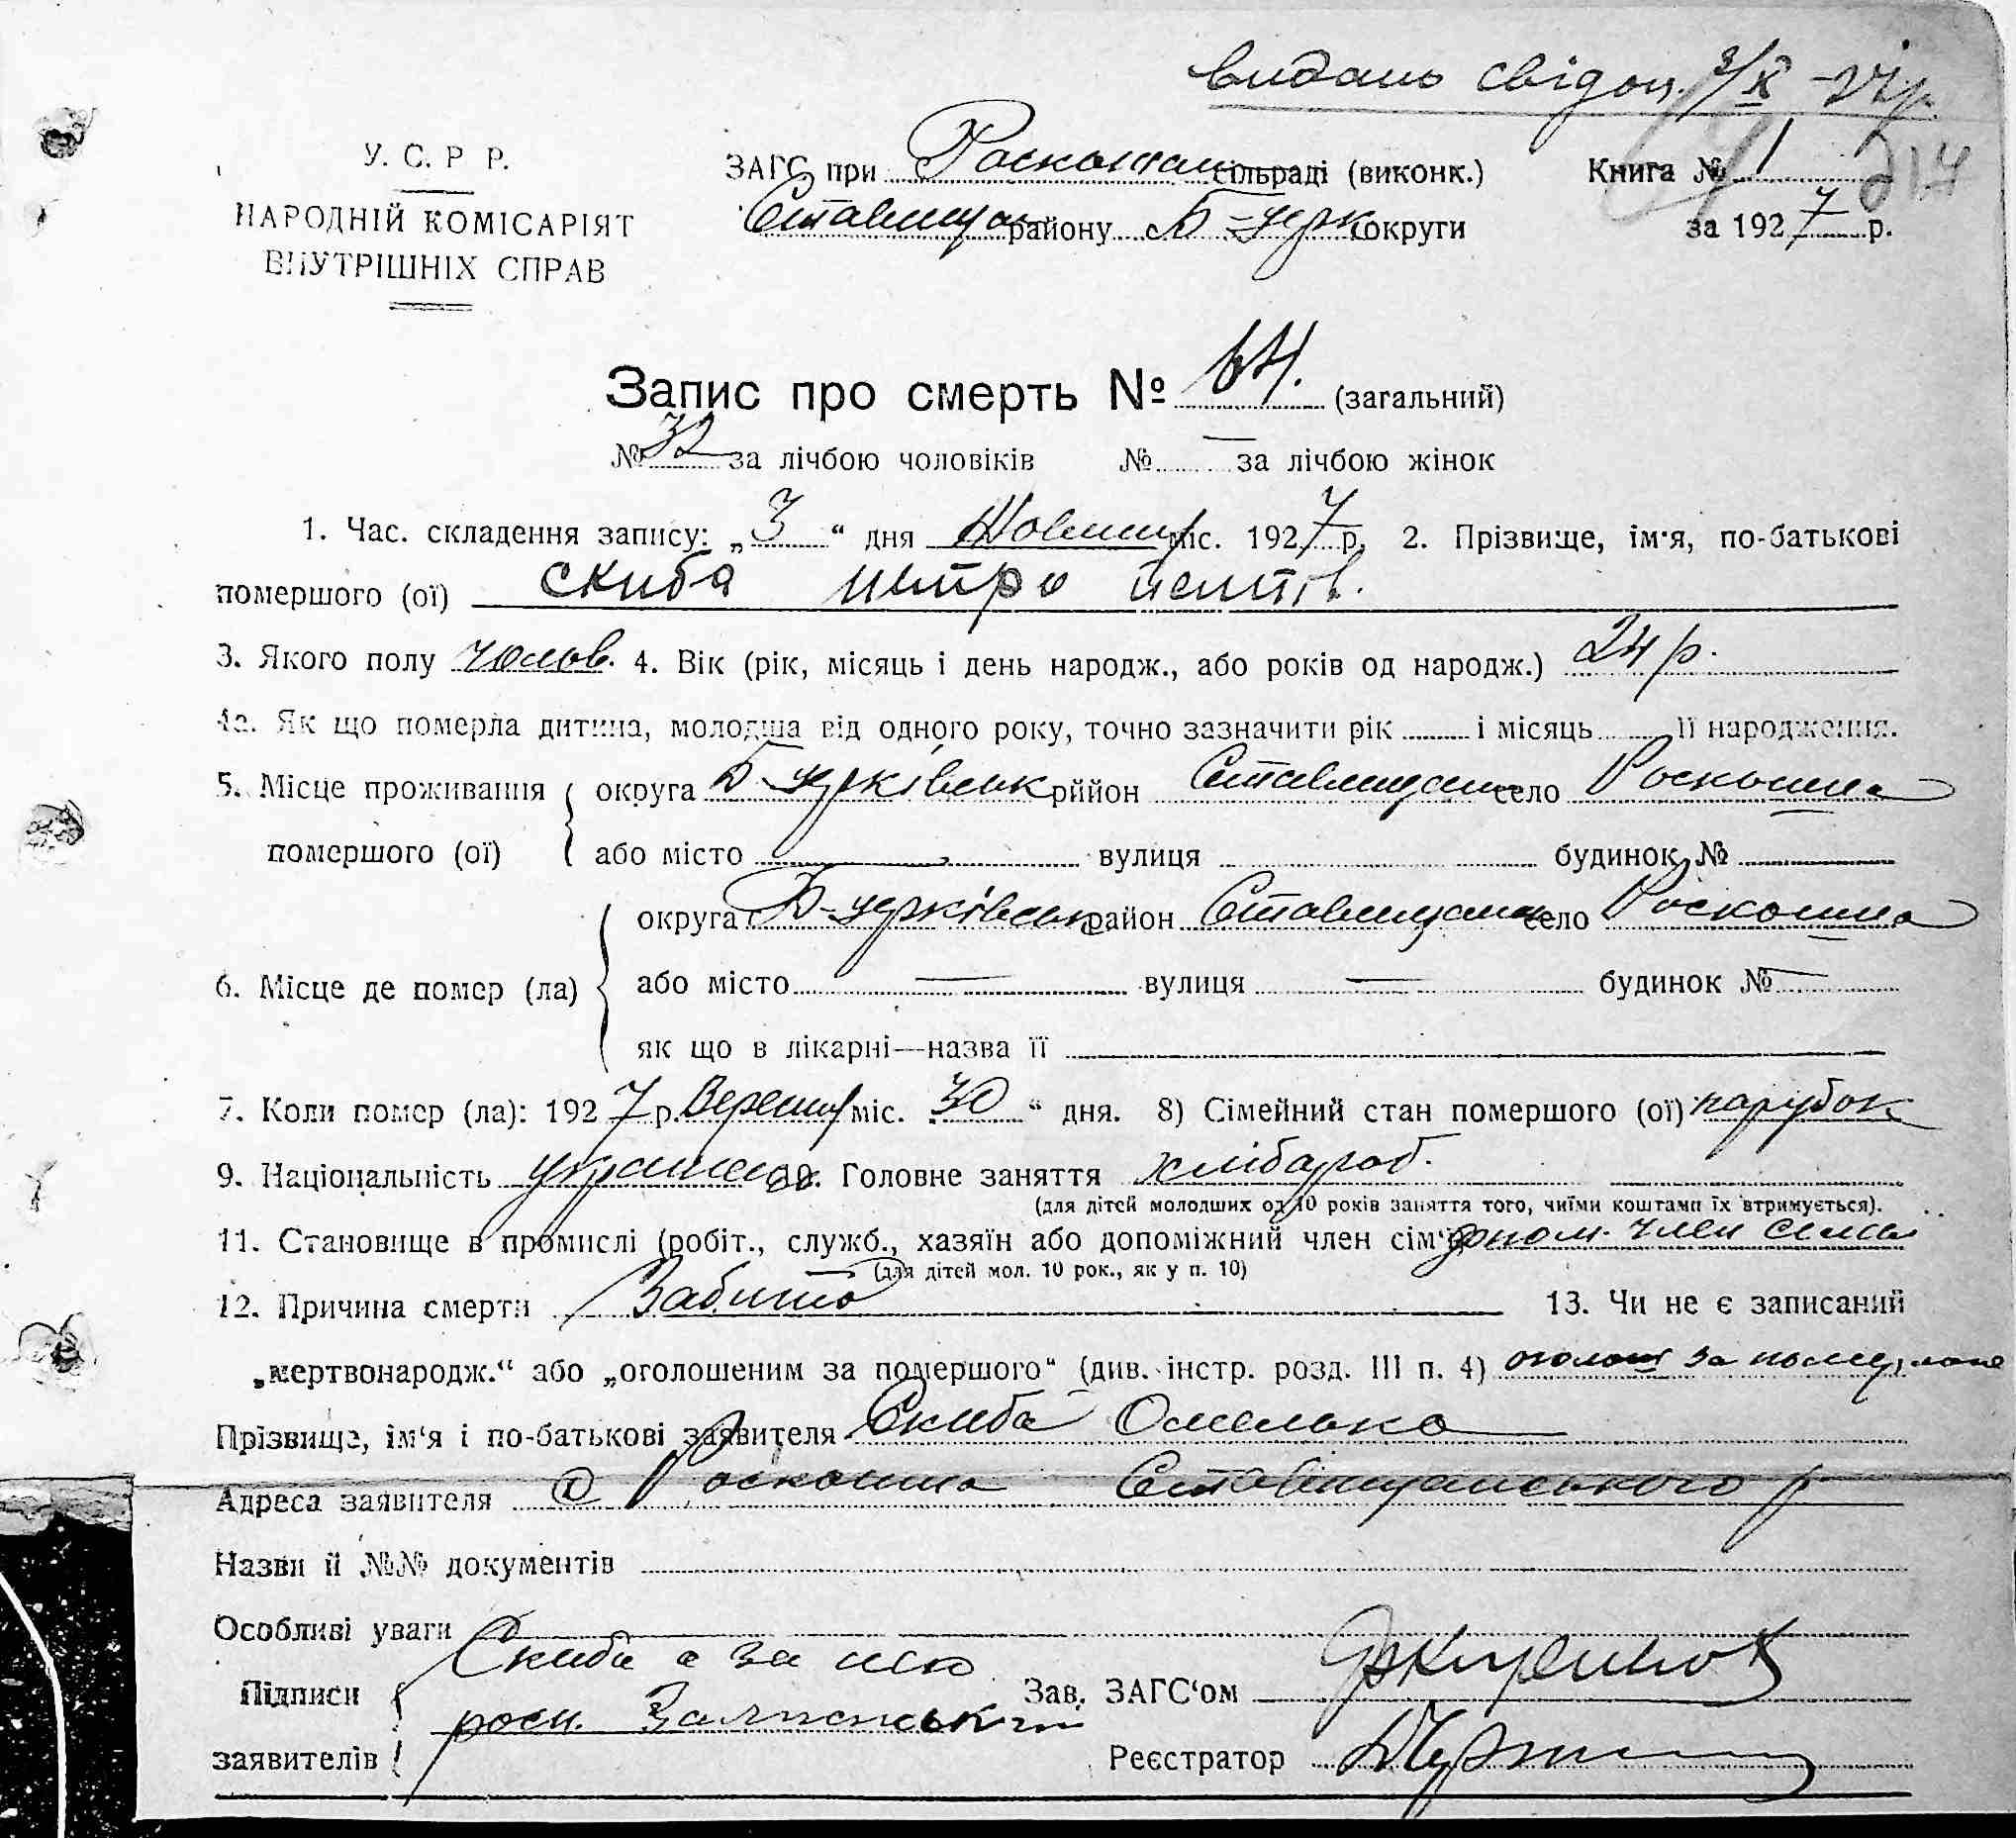 видано свідоц. 3/X - 27 р.
У. С. Р Р.
НАРОДНІЙ КОМІСАРІЯТ
ВНУТРІШНІХ СПРАВ
ЗАГС при Роскошан сільраді (виконк.) Книга № 1
Ставищан району Б-церк округи за 1927 р.
Запис про смерть № 64. (загальний)
№ 32 за лічбою чоловіків № — за лічбою жінок
1. Час. складення запису: „3“ дня Жовтня міс. 1927 р. 2. Прізвище, ім'я, по-батькові
помершого (ої) Скиба Петро
3. Якого полу чолов. 4. Вік (рік, місяць і день народж., або років од народж.) 24 р.
4а. Як що померла дитина, молодша від одного року, точно зазначити рік і місяць її народження.
5. Місце проживання помершого (ої) округа Б-церківськ рййон Ставищан село Роскошна
або місто — вулиця будинок №
6. Місце де помер (ла) округа Б-церківськ район Ставищан село Роскошна
або місто — вулиця — будинок № —
як що в лікарні—назва її
7. Коли помер (ла): 1927 р. Вересня міс. 30 “ дня. 8) Сімейний стан помершого (ої) парубок
9. Національність українец 10. Головне заняття хлібороб.
(для дітей молодших од 10 років заняття того, чиїми коштами їх втримується).
11. Становище в промислі (робіт., служб., хазяїн або допоміжний член сім'ї) допом. член сімьї
(для дітей мол. 10 рок., як у п. 10)
12. Причина смерти Забито 13. Чи не є записаний
„мертвонародж.“ або „оголошеним за помершого“ (див. інстр. розд. III п. 4) оголош за
Прізвище, ім'я і по-батькові заявителя Скиба Омелько
Адреса заявителя с Роскошна Ставищанського р
Назви й №№ документів
Особливі уваги
Підписи заявителів Скиба а за него
росп. Зав. ЗАГС'ом
Реєстратор